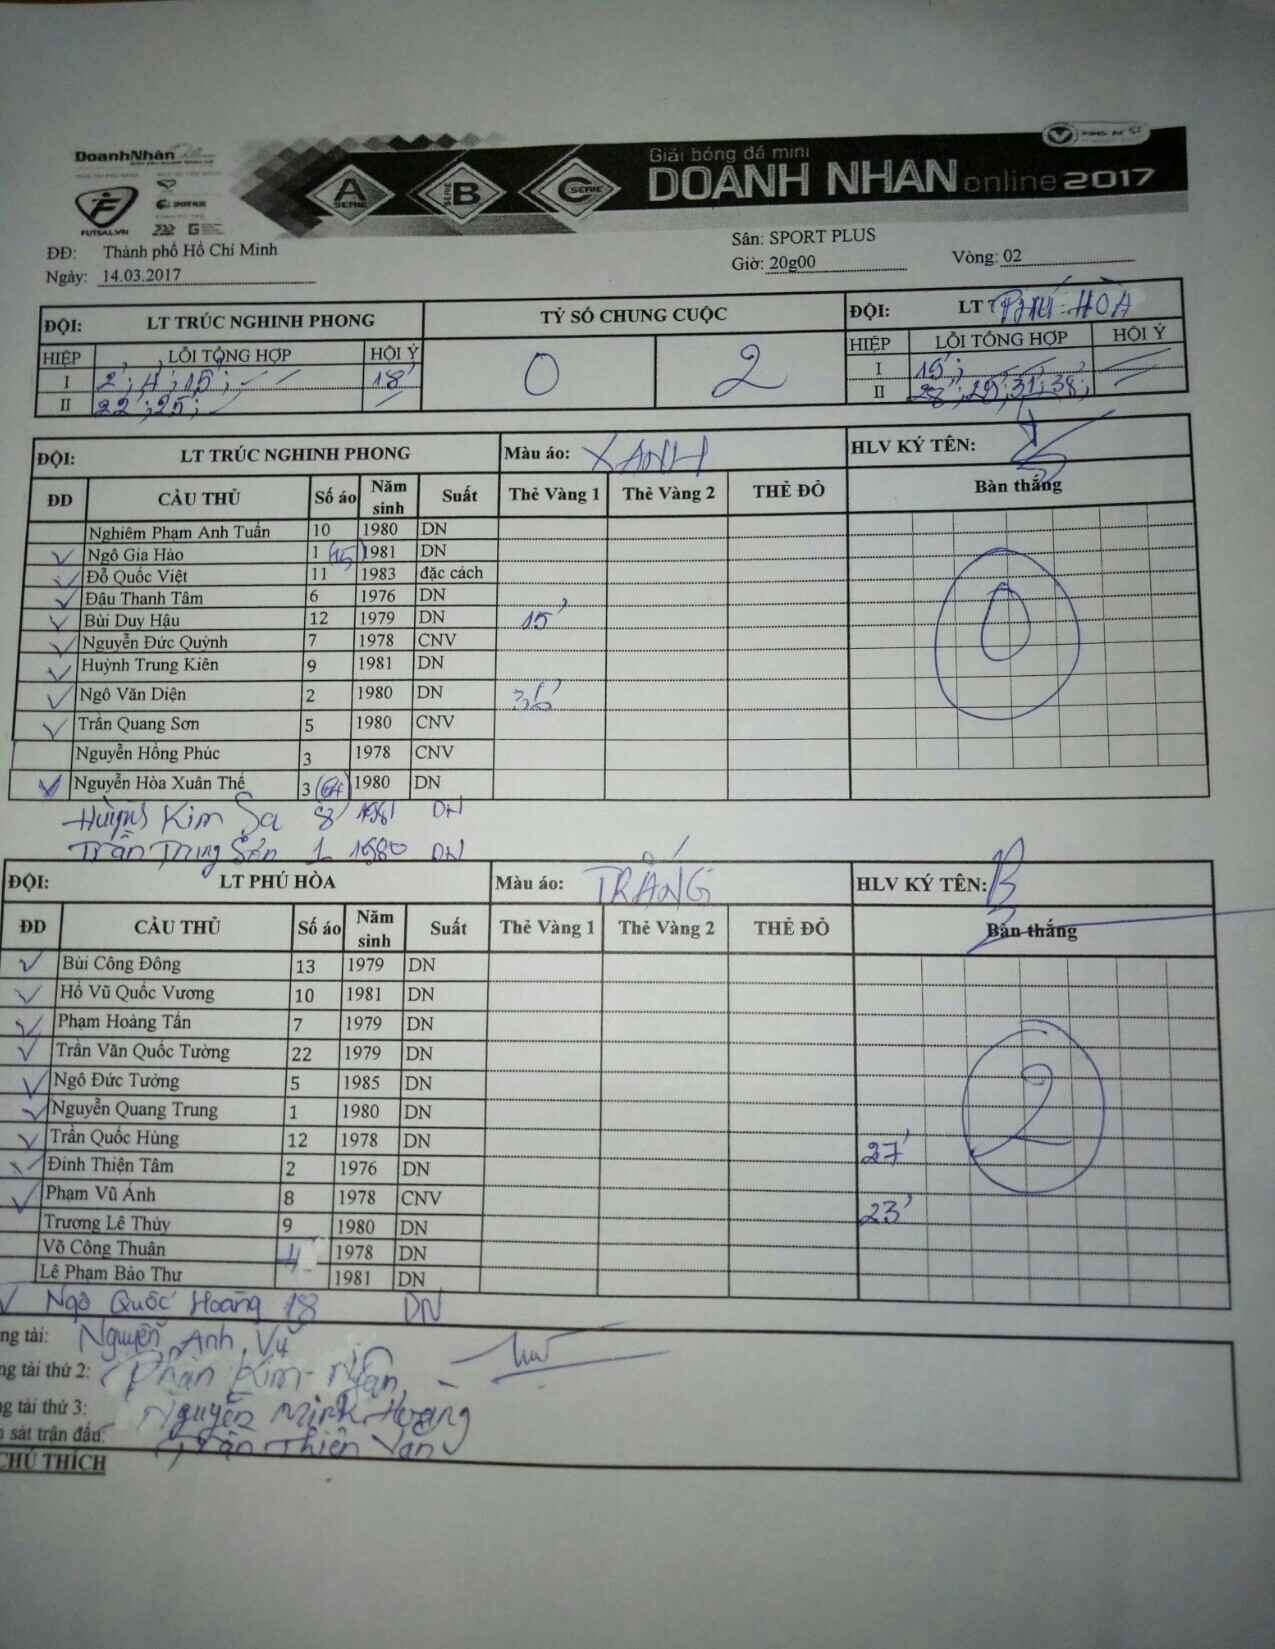 DoanhNhân
Giải bóng đá mini
DOANH NHÂN online 2017
A SERIE
B SERIE
C SERIE
FUTSAL.VN
SPORT PLUS
ĐĐ: Thành phố Hồ Chí Minh
Sân: SPORT PLUS
Ngày: 14.03.2017
Giờ: 20g00 Vòng: 02
ĐỘI: LT TRÚC NGHINH PHONG TỶ SỐ CHUNG CUỘC ĐỘI: LT PHÚ HÒA
HIỆP LỖI TỔNG HỢP HỘI Ý 0 2 HIỆP LỖI TỔNG HỢP HỘI Ý
I 2'; 4'; 15'; 18' I 15';
II 22'; 25'; II 28'; 29'; 31'; 38';
ĐỘI: LT TRÚC NGHINH PHONG Màu áo: XANH HLV KÝ TÊN:
ĐD CẦU THỦ Số áo Năm sinh Suất Thẻ Vàng 1 Thẻ Vàng 2 THẺ ĐỎ Bàn thắng
Nghiêm Phạm Anh Tuấn 10 1980 DN
Ngô Gia Hào 1 (15) 1981 DN
Đỗ Quốc Việt 11 1983 đặc cách
Đậu Thanh Tâm 6 1976 DN
Bùi Duy Hậu 12 1979 DN 15'
Nguyễn Đức Quỳnh 7 1978 CNV
Huỳnh Trung Kiên 9 1981 DN
Ngô Văn Diện 2 1980 DN
Trần Quang Sơn 5 1980 CNV
Nguyễn Hồng Phúc 3 1978 CNV
Nguyễn Hòa Xuân Thế 3 1980 DN
0
Huỳnh Kim Sa 8 1981 DN
Trần Trung Sơn 1 1980 DN
ĐỘI: LT PHÚ HÒA Màu áo: TRẮNG HLV KÝ TÊN:
ĐD CẦU THỦ Số áo Năm sinh Suất Thẻ Vàng 1 Thẻ Vàng 2 THẺ ĐỎ Bàn thắng
Bùi Công Đông 13 1979 DN
Hồ Vũ Quốc Vương 10 1981 DN
Phạm Hoàng Tấn 7 1979 DN
Trần Văn Quốc Tường 22 1979 DN
Ngô Đức Tưởng 5 1985 DN
Nguyễn Quang Trung 1 1980 DN
Trần Quốc Hùng 12 1978 DN 27'
Đinh Thiện Tâm 2 1976 DN
Phạm Vũ Ánh 8 1978 CNV 23'
Trương Lê Thúy 9 1980 DN
Võ Công Thuân 4 1978 DN
Lê Phạm Bảo Thư 1981 DN
2
Ngô Quốc Hoàng 18 DN
ng tài: Nguyễn Anh Vũ
ng tài thứ 2: Phan Kim Ngân
ng tài thứ 3: Nguyễn Minh Hoàng
sát trận đấu: Trần Thiên Vân
CHÚ THÍCH